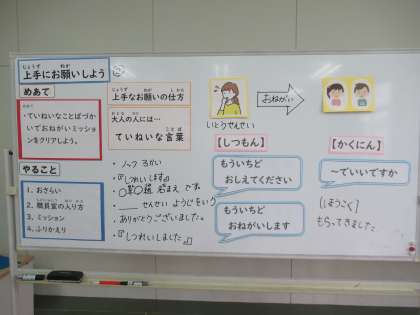 上手にお願いしよう
②
めあて
めあて
・ていねいなことばづかいでおねがいミッションをクリアしよう。
やること
1. おさらい
2. 職員室の入り方
3. ミッション
4. ふりかえり
上手なお願いの仕方
大人の人には…
ていねいな言葉
・ノック 3かい
・『しつれいします』
せんせい ようじをいう
・ありがとうございました。
・『しつれいしました。』
いとうせんせい
おねがい
【しつもん】
もういちど
おしえてください
もういちど
おねがいします
【かくにん】
～でいいですか
[ほうこく]
もらってきました